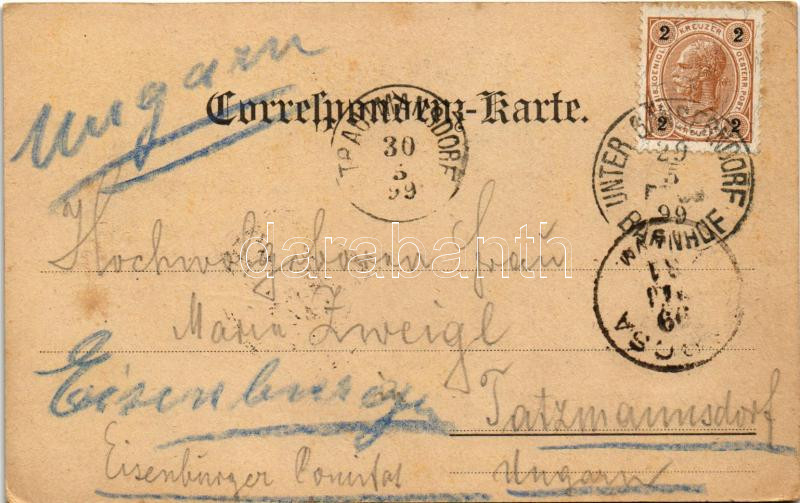 Ungarn
Correspondenz-Karte.
2 KREUZER 2
2 2
TRAUTMANSDORF
30
5
99
UNTER
29
5
99
BAHNHOF
31
99
darabanth
Hochwohlgeboren Frau
Maria Zweigl
Eisenburg
Tatzmannsdorf
Eisenburger Comitat
Ungarn